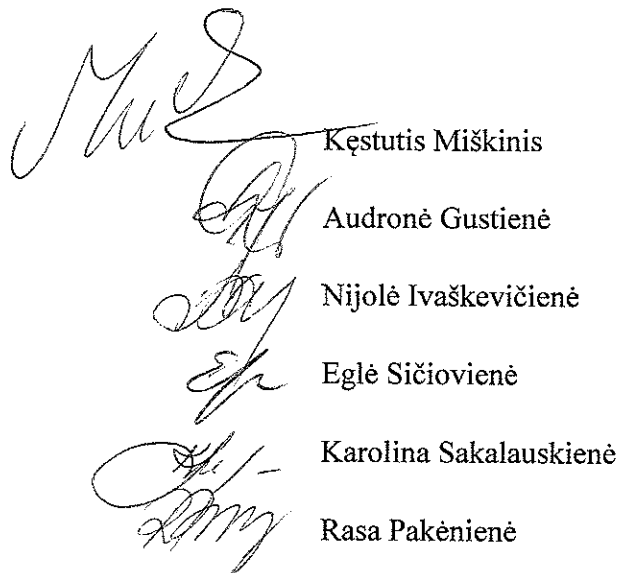 Kęstutis Miškinis
Audronė Gustienė
Nijolė Ivaškevičienė
Eglė Sičiovienė
Karolina Sakalauskienė
Rasa Pakėnienė